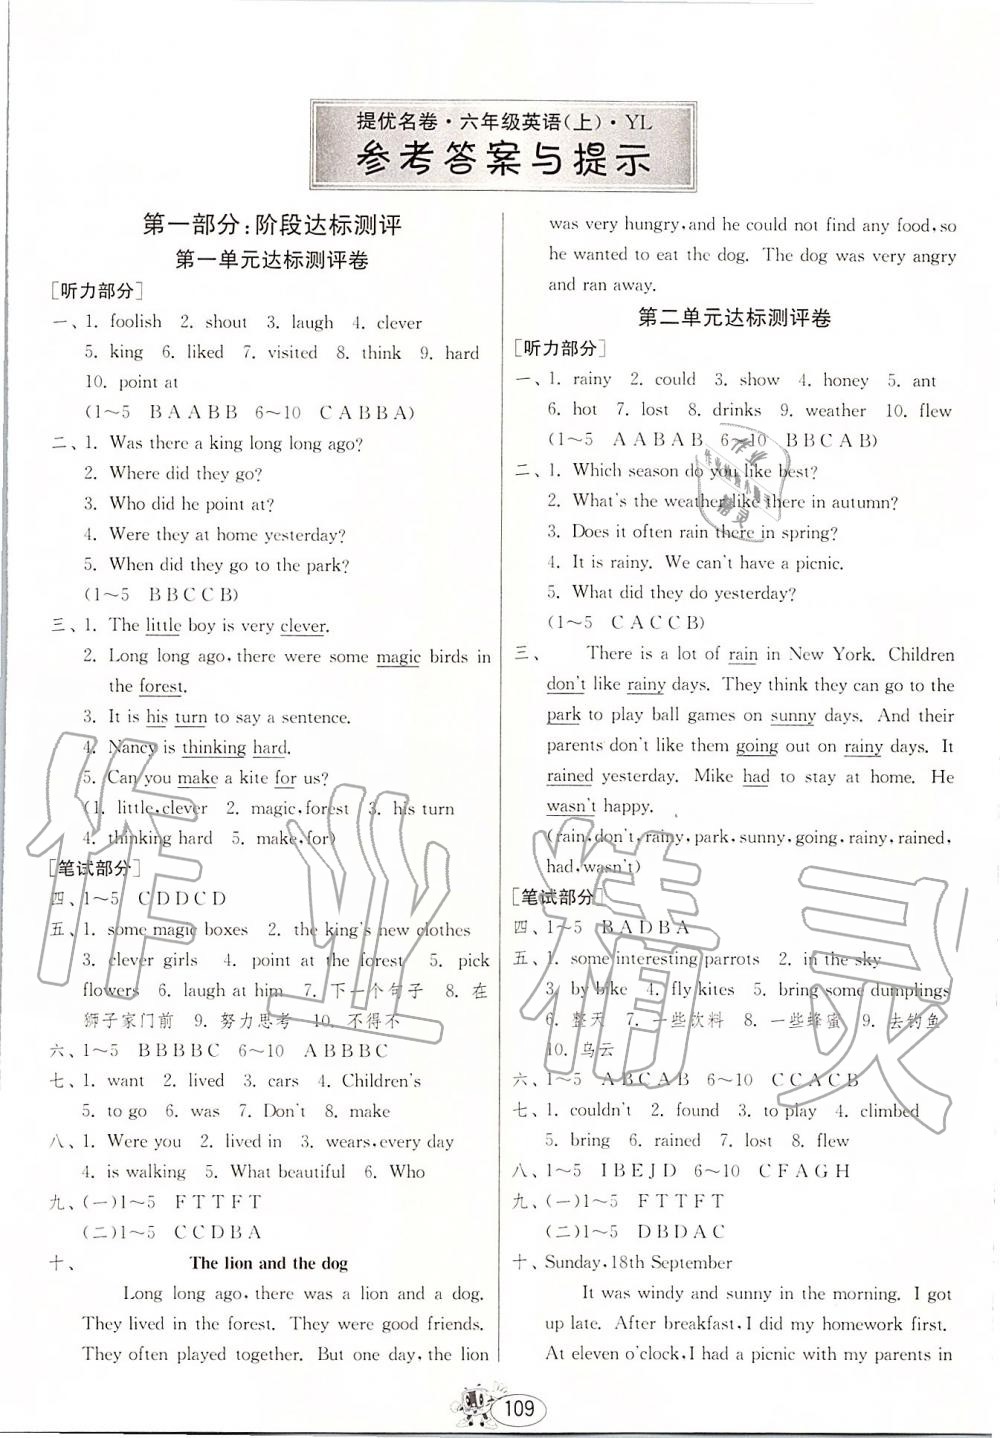 提优名卷·六年级英语(上)·YL
参考答案与提示
第一部分:阶段达标测评
第一单元达标测评卷
[听力部分]
一、1. foolish 2. shout 3. laugh 4. clever
5. king 6. liked 7. visited 8. think 9. hard
10. point at
(1~5 B A A B B 6~10 C A B B A)
二、1. Was there a king long long ago?
2. Where did they go?
3. Who did he point at?
4. Were they at home yesterday?
5. When did they go to the park?
(1~5 B B C C B)
三、1. The little boy is very clever.
2. Long long ago, there were some magic birds in
the forest.
3. It is his turn to say a sentence.
4. Nancy is thinking hard.
5. Can you make a kite for us?
(1. little,clever 2. magic,forest 3. his turn
4. thinking hard 5. make,for)
[笔试部分]
四、1~5 C D D C D
五、1. some magic boxes 2. the king's new clothes
3. clever girls 4. point at the forest 5. pick
flowers 6. laugh at him 7. 下一个句子 8. 在
狮子家门前 9. 努力思考 10. 不得不
六、1~5 B B B B C 6~10 A B B B C
七、1. want 2. lived 3. cars 4. Children's
5. to go 6. was 7. Don't 8. make
八、1. Were you 2. lived in 3. wears,every day
4. is walking 5. What beautiful 6. Who
九、(一)1~5 F T T F T
(二)1~5 C C D B A
十、 The lion and the dog
Long long ago, there was a lion and a dog.
They lived in the forest. They were good friends.
They often played together. But one day, the lion
was very hungry, and he could not find any food, so
he wanted to eat the dog. The dog was very angry
and ran away.
第二单元达标测评卷
[听力部分]
一、1. rainy 2. could 3. show 4. honey 5. ant
6. hot 7. lost 8. drinks 9. weather 10. flew
(1~5 A A B A B 6~10 B B C A B)
二、1. Which season do you like best?
2. What's the weather like there in autumn?
3. Does it often rain there in spring?
4. It is rainy. We can't have a picnic.
5. What did they do yesterday?
(1~5 C A C C B)
三、 There is a lot of rain in New York. Children
don't like rainy days. They think they can go to the
park to play ball games on sunny days. And their
parents don't like them going out on rainy days. It
rained yesterday. Mike had to stay at home. He
wasn't happy.
(rain,don't,rainy,park,sunny,going,rainy,rained,
had,wasn't)
[笔试部分]
四、1~5 B A D B A
五、1. some interesting parrots 2. in the sky
3. by bike 4. fly kites 5. bring some dumplings
6. 整天 7. 一些饮料 8. 一些蜂蜜 9. 去钓鱼
10. 乌云
六、1~5 A B C A B 6~10 C C A C B
七、1. couldn't 2. found 3. to play 4. climbed
5. bring 6. rained 7. lost 8. flew
八、1~5 I B E J D 6~10 C F A G H
九、(一)1~5 F T T F T
(二)1~5 D B D A C
十、Sunday, 18th September
It was windy and sunny in the morning. I got
up late. After breakfast, I did my homework first.
At eleven o'clock, I had a picnic with my parents in
109
作业精灵
作业精灵